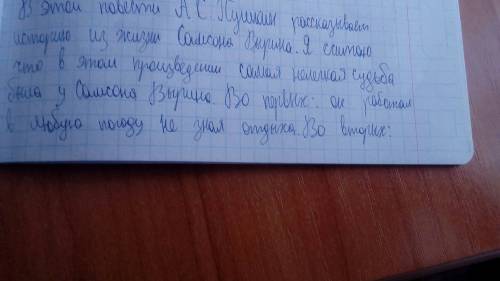 В этой повести А С Пушкин рассказывает
историю из жизни Самсона Вырина. Я считаю
что в этом произведении самая нелегкая судьба
была у Самсона Вырина. Во первых: он работал
в любую погоду не зная отдыха. Во вторых: